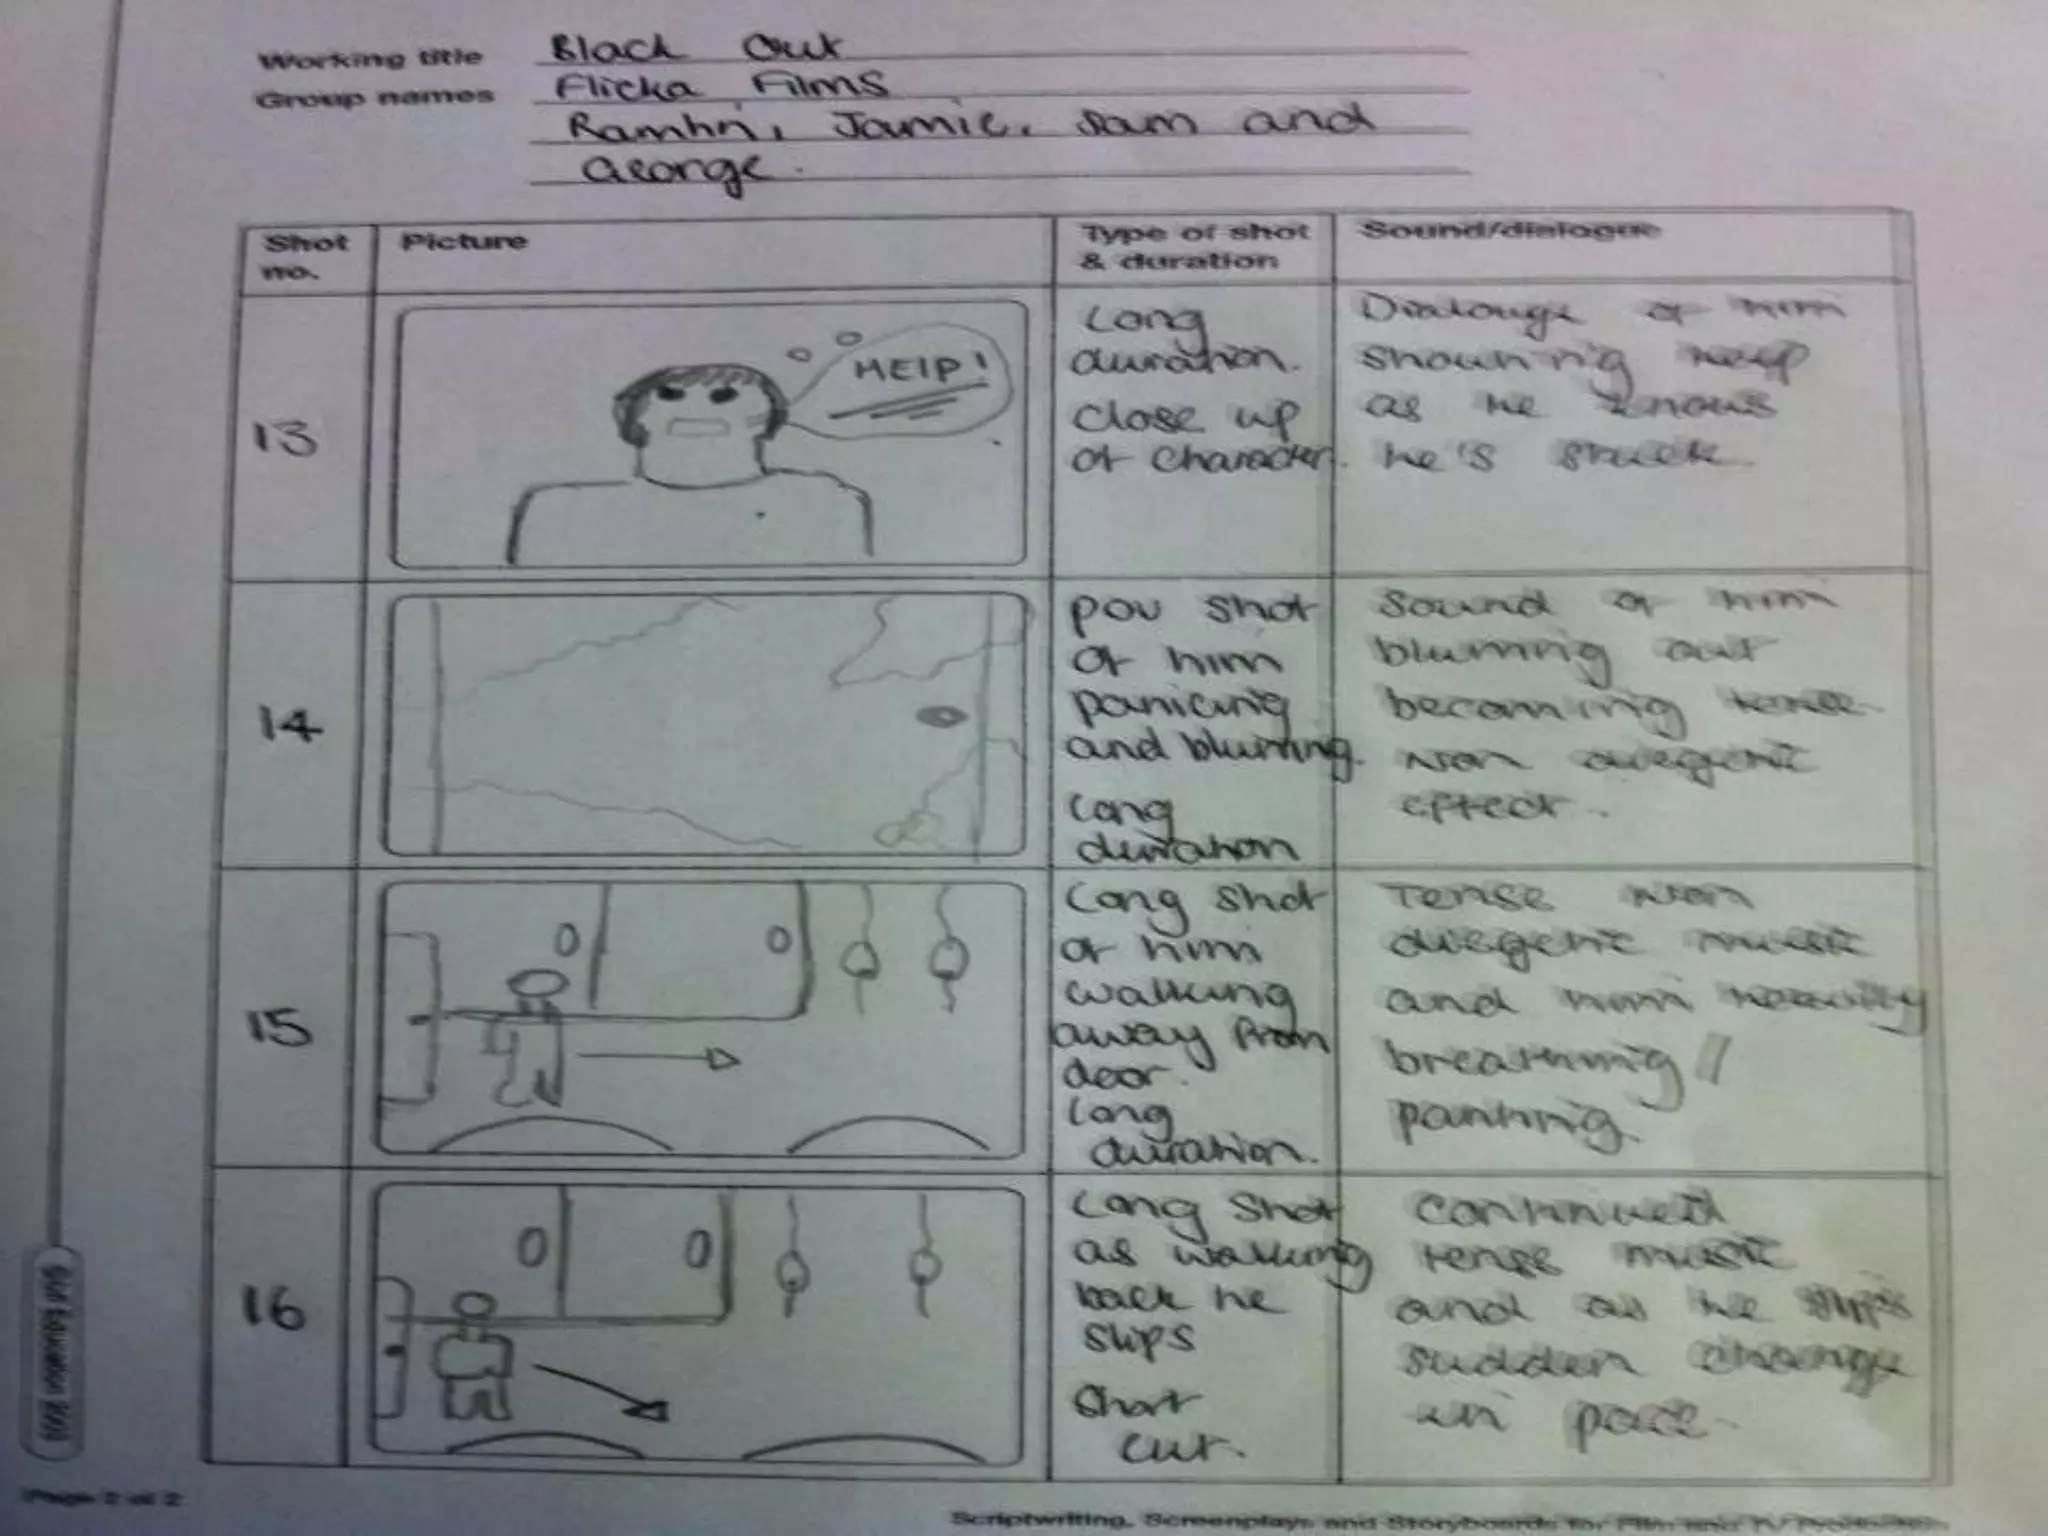 Working title Black Out
Group names Flicka Films
Ramhn, Jamie, Sam and
George.
Shot no.
Picture
Type of shot & duration
Sound/dialogue
13
HElP!
Long
duration.
Close up
of character.
Dialouge of him
shouting help
as he knows
he's stuck.
14
POV shot
of him
panicing
and blurring.
Long
duration
Sound of him
blurring out
becoming tense
non diegetic
effect.
15
Long shot
of him
walking
away from
door.
Long
duration.
Tense non
diegetic music
and him heavily
breathing/
panting.
16
Long shot
as walking
back he
slips
Short
cut.
Continued
tense music
and as he slips
sudden change
in pace.
Page 2 of 2
Scriptwriting, Screenplays and Storyboards for Film and TV